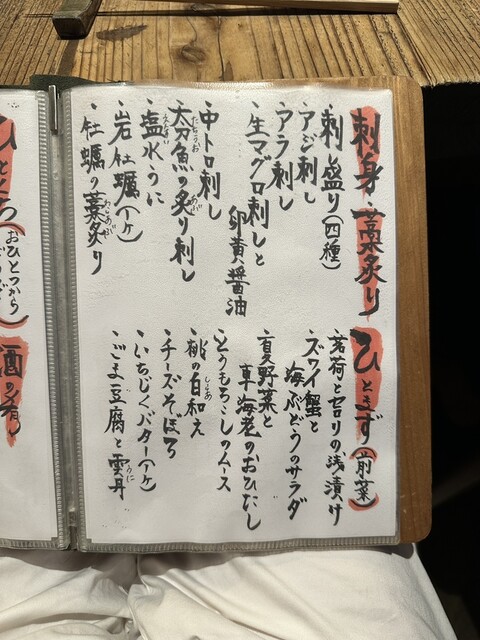 刺身・藁炙り
・刺し盛り(四種)
・アジ刺し
・アラ刺し
・生マグロ刺しと
卵黄醤油
・中トロ刺し
・太刀魚の炙り刺し
・塩水うに
・岩牡蠣(1ヶ)
・牡蠣の藁炙り
ひとまず(前菜)
・茗荷とセロリの浅漬け
・ズワイ蟹と
海ぶどうのサラダ
・夏野菜と
車海老のおひたし
・とうもろこしのムース
・桃の白和え
・チーズそぼろ
・いちじくバター(1ヶ)
・ごま豆腐と雲丹
(おひとつから)
酒の肴